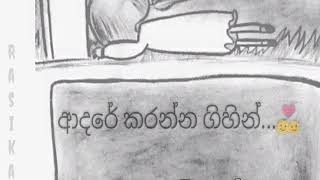 RASIKA
ආදරේ කරන්න ගිහින්...💑